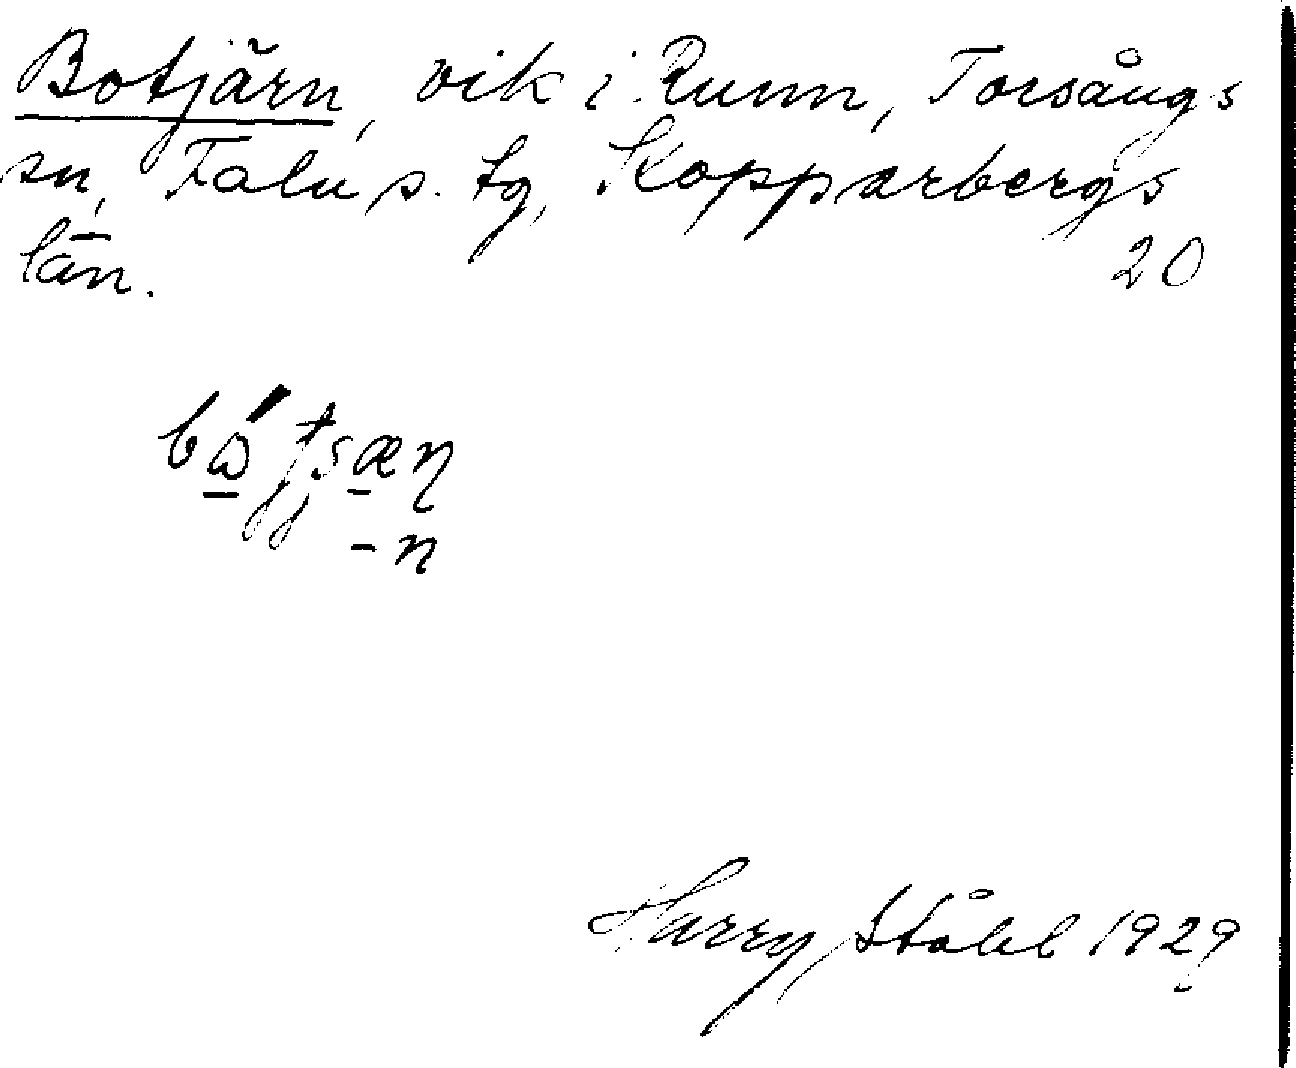 Botjärn, vik i Runn, Torsångs
sn, Falu s. tg, Kopparbergs
län.
20
-n
Harry Ståhl 1929